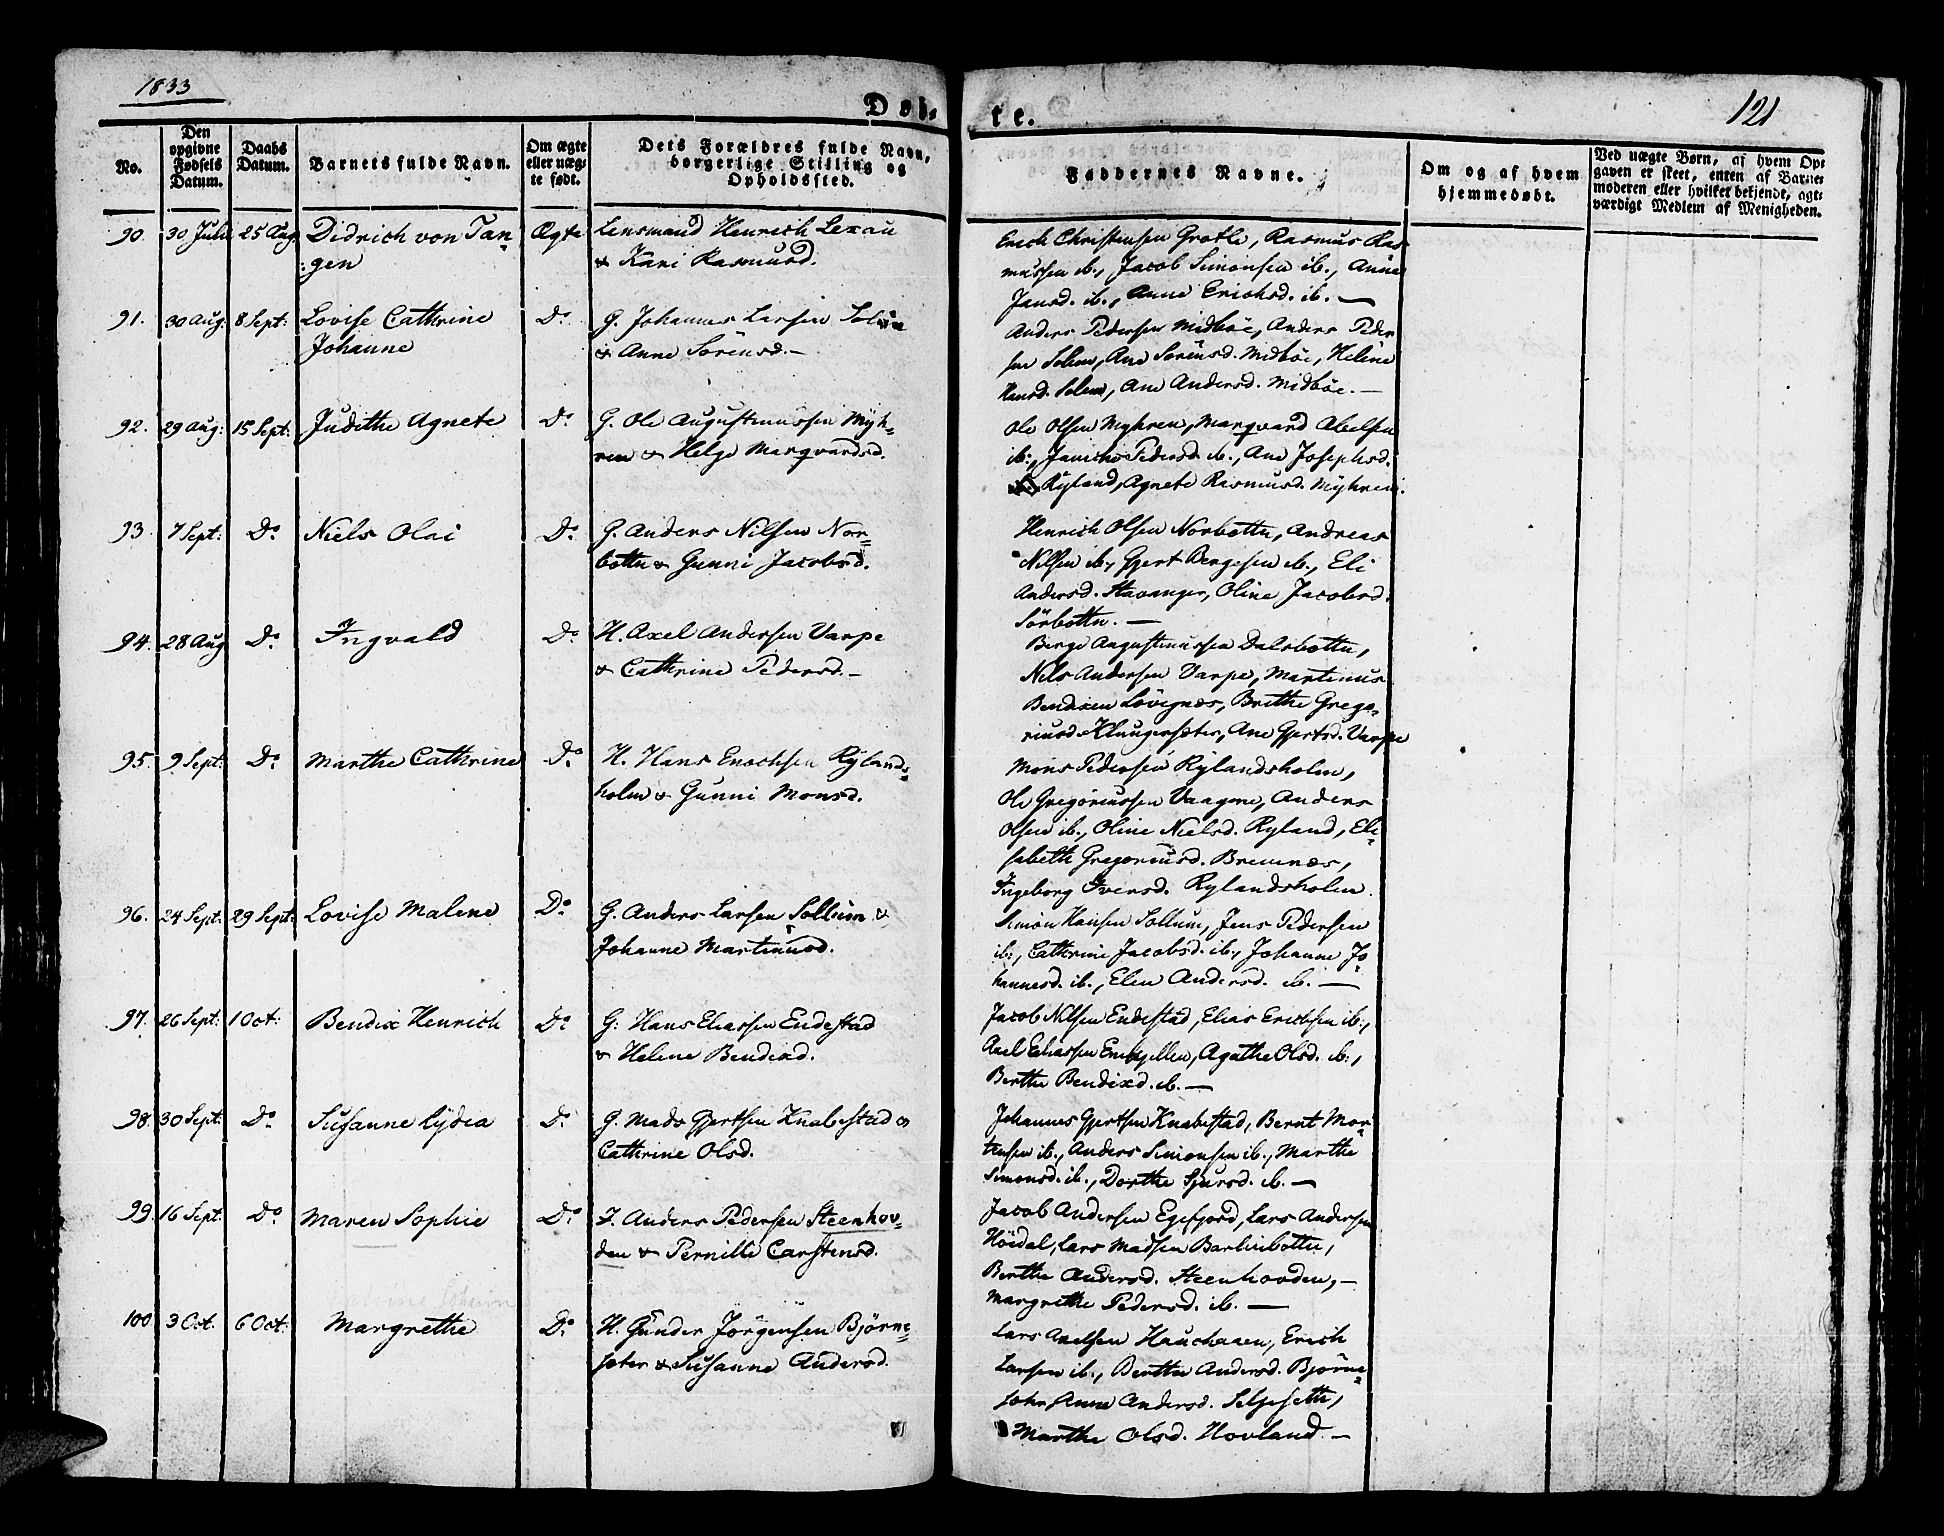 1833
Døb-
te.
121
No.
Den opgivne Fødsels Datum.
Daabs Datum.
Barnets fulde Navn.
Om ægte eller uæg-te født.
Dets Forældres fulde Navn, borgerlige Stilling og Opholdssted.
Faddernes Navne.
Om og af hvem hjemmedøbt.
Ved uægte Børn, af hvem Op-gaven er skeet, enten af Barne-moderen eller hvilket bekjendt, agt-værdigt Medlem af Menigheden.
90. 30 Juli 25 Aug. Didrich von Tan- Ægte Lensmand Henrich Lexau
:gen & Kari Rasmusd.
Erich Christensen Grotle, Rasmus Ras-
mussen ib., Jacob Simonsen ib., Anne
Jansd. ib., Anne Erichsd. ib. —
91. 30 Aug. 8 Sept: Lovise Cathrine Do G. Johannes Larsen Solem
Johanne & Anne Sörensd. —
Anders Pedersen Midböe, Anders Peder
sen Selem, Ane Sörensd. Midböe, Helene
Hansd. Selem, Ane Andersd. Midböe. —
92. 29 Aug: 15 Sept: Judithe Agnete Do G. Ole Augustinussen Myh-
ren & Helge Marqvardsd.
Ole Olsen Myhren, Marqvard Abelsen
ib., Janiche Pedersd. ib., Ane Josephsd.
Ryland, Agnete Rasmusd. Myhren.
93. 7 Sept: Do Niels Olai Do G. Anders Nilsen Nor-
botten & Gunni Jacobsd.
Henrich Olsen Norbotten, Andreas
Nilsen ib., Gjert Bergesen ib., Eli
Andersd. Stavanger, Oline Jacobsd.
Sörbotten. —
94. 28 Aug Do Ingvald Do H. Axel Andersen Varpe
& Cathrine Pedersd. —
Berge Augustinussen Dalsbotten,
Nils Andersen Varpe, Martinus
Bendixen Lövignæs, Brithe Grego-
riusd. Klungersæter, Ane Gjertsd. Varpe
95. 9 Sept: Do Marthe Cathrine Do H. Hans Enochsen Rylands-
holm & Gunni Monsd.
Mons Pedersen Rylandsholm,
Ole Gregoriussen Vaagene, Anders
Olsen ib., Oline Nielsd. Ryland, Eli-
sabeth Gregoriusd. Bremnes,
Ingeborg Iversd. Rylandsholm.
96. 24 Sept. 29 Sept: Lovise Malene Do G. Anders Larsen Sollum &
Johanne Martinusd.
Simon Hansen Sollum, Jens Pedersen
ib., Cathrine Jacobsd. ib., Johanne Jo-
hannesd. ib., Elen Andersd. ib. —
97. 26 Sept: 1 Oct: Bendix Henrich Do G: Hans Eliassen Endestad
& Helene Bendixd.
Jacob Nilsen Endestad, Elias Erichsen ib.,
Axel Eliassen Emhjellen, Agathe Olsd. ib.,
Berthe Bendixd. ib. —
98. 30 Sept. Do Susanne Lydia Do G. Mads Gjertsen Knabestad &
Cathrine Olsd.
Johannes Gjertsen Knabestad, Bernt Mor-
tensen ib., Anders Simonsen ib., Marthe
Simonsd. ib., Dorthe Sjursd. ib. —
99. 16 Sept. Do Maren Sophie Do F. Anders Pedersen Steenhov-
den & Pernille Carstensd.
Jacob Andersen Egefjord, Lars Andersen
Höidal, Lars Madsen Barlindbotten,
Berthe Andersd. Steenhovden, —
Margrethe Pedersd. ib. —
100 3 Oct. 6 Oct: Margrethe Do H. Gunder Jörgensen Björne-
seter & Susanne Andersd.
Lars Axelsen Hauchaaen, Erich
Larsen ib., Berthe Andersd. Björne-
seter, Anne Andersd. Seljesethe,
Marthe Olsd. Hovland. —